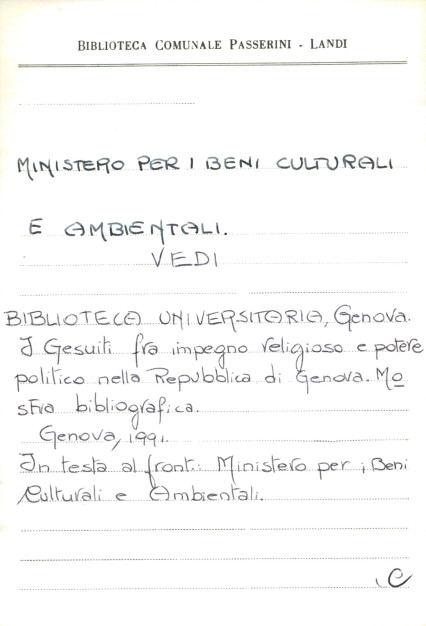 BIBLIOTECA COMUNALE PASSERINI - LANDI
MINISTERO PER I BENI CULTURALI
E AMBIENTALI.
VEDI
BIBLIOTECA UNIVERSITARIA, Genova.
I Gesuiti fra impegno religioso e potere
politico nella Repubblica di Genova. Mo
stra bibliografica.
Genova, 1991.
In testa al front.: Ministero per i Beni
Culturali e Ambientali.
C